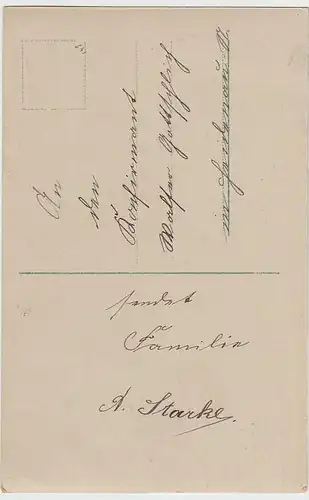 An
den
Konfirmant
Walther Gottschlich
in
sendet
Familie
A. Starke.